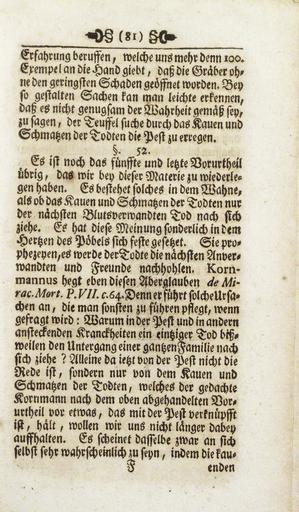 (81)
Erfahrung beruffen, welche uns mehr denn 100.
Exempel an die Hand giebt, daß die Gräber oh-
ne den geringsten Schaden geöffnet worden. Bey
so gestalten Sachen kan man leichte erkennen,
daß es nicht genugsam der Wahrheit gemäß sey,
zu sagen, der Teuffel suche durch das Kauen und
Schmatzen der Todten die Pest zu erregen.
§. 52.
Es ist noch das fünffte und letzte Vorurtheil
übrig, das wir bey dieser Materie zu wiederle-
gen haben. Es bestehet solches in dem Wahne,
als ob das Kauen und Schmatzen der Todten nur
der nächsten Blutsverwandten Tod nach sich
ziehe. Es hat diese Meinung sonderlich in dem
Hertzen des Pöbels sich feste gesetzet. Sie pro-
phezeyen, es werde der Todte die nächsten Anver-
wandten und Freunde nachhohlen. Korn-
mannus hegt eben diesen Aberglauben de Mi-
rac. Mort. P. VII. c. 64. Denn er führt solche Ursa-
chen an, die man sonsten zu führen pflegt, wenn
gefragt wird: Warum in der Pest und in andern
ansteckenden Kranckheiten ein eintziger Tod biß-
weilen den Untergang einer gantzen Familie nach
sich ziehe? Alleine da ietzt von der Pest nicht die
Rede ist, sondern nur von dem Kauen und
Schmatzen der Todten, welches der gedachte
Kornmann nach dem oben abgehandelten Vor-
urtheil vor etwas, das mit der Pest verknüpfft
ist, hält, wollen wir uns nicht länger dabey
auffhalten. Es scheinet dasselbe zwar an sich
selbst sehr wahrscheinlich zu seyn, indem die kau-
F enden